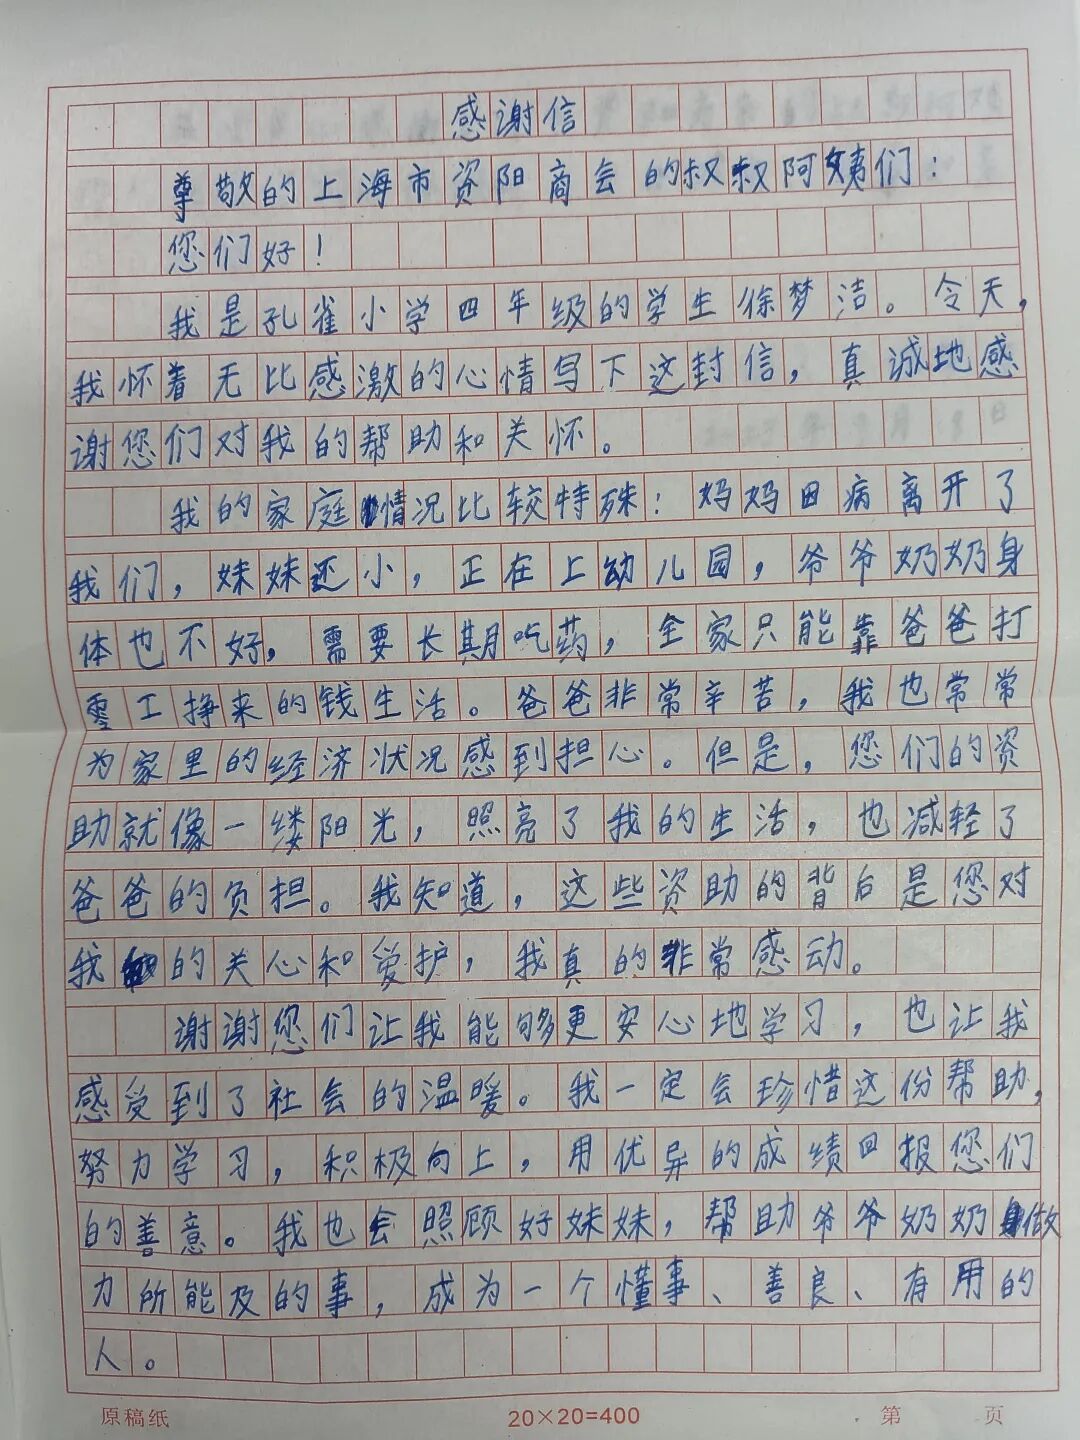 感谢信
尊敬的上海市资阳商会的叔叔阿姨们：
您们好！
我是孔雀小学四年级的学生徐梦洁。今天，
我怀着无比感激的心情写下这封信，真诚地感
谢您们对我的帮助和关怀。
我的家庭情况比较特殊：妈妈因病离开了
我们，妹妹还小，正在上幼儿园，爷爷奶奶身
体也不好，需要长期吃药，全家只能靠爸爸打
零工挣来的钱生活。爸爸非常辛苦，我也常常
为家里的经济状况感到担心。但是，您们的资
助就像一缕阳光，照亮了我的生活，也减轻了
爸爸的负担。我知道，这些资助的背后是您对
我的关心和爱护，我真的非常感动。
谢谢您们让我能够更安心地学习，也让我
感受到了社会的温暖。我一定会珍惜这份帮助，
努力学习，积极向上，用优异的成绩回报您们
的善意。我也会照顾好妹妹，帮助爷爷奶奶做
力所能及的事，成为一个懂事、善良、有用的
人。
原稿纸 20×20=400 第 页